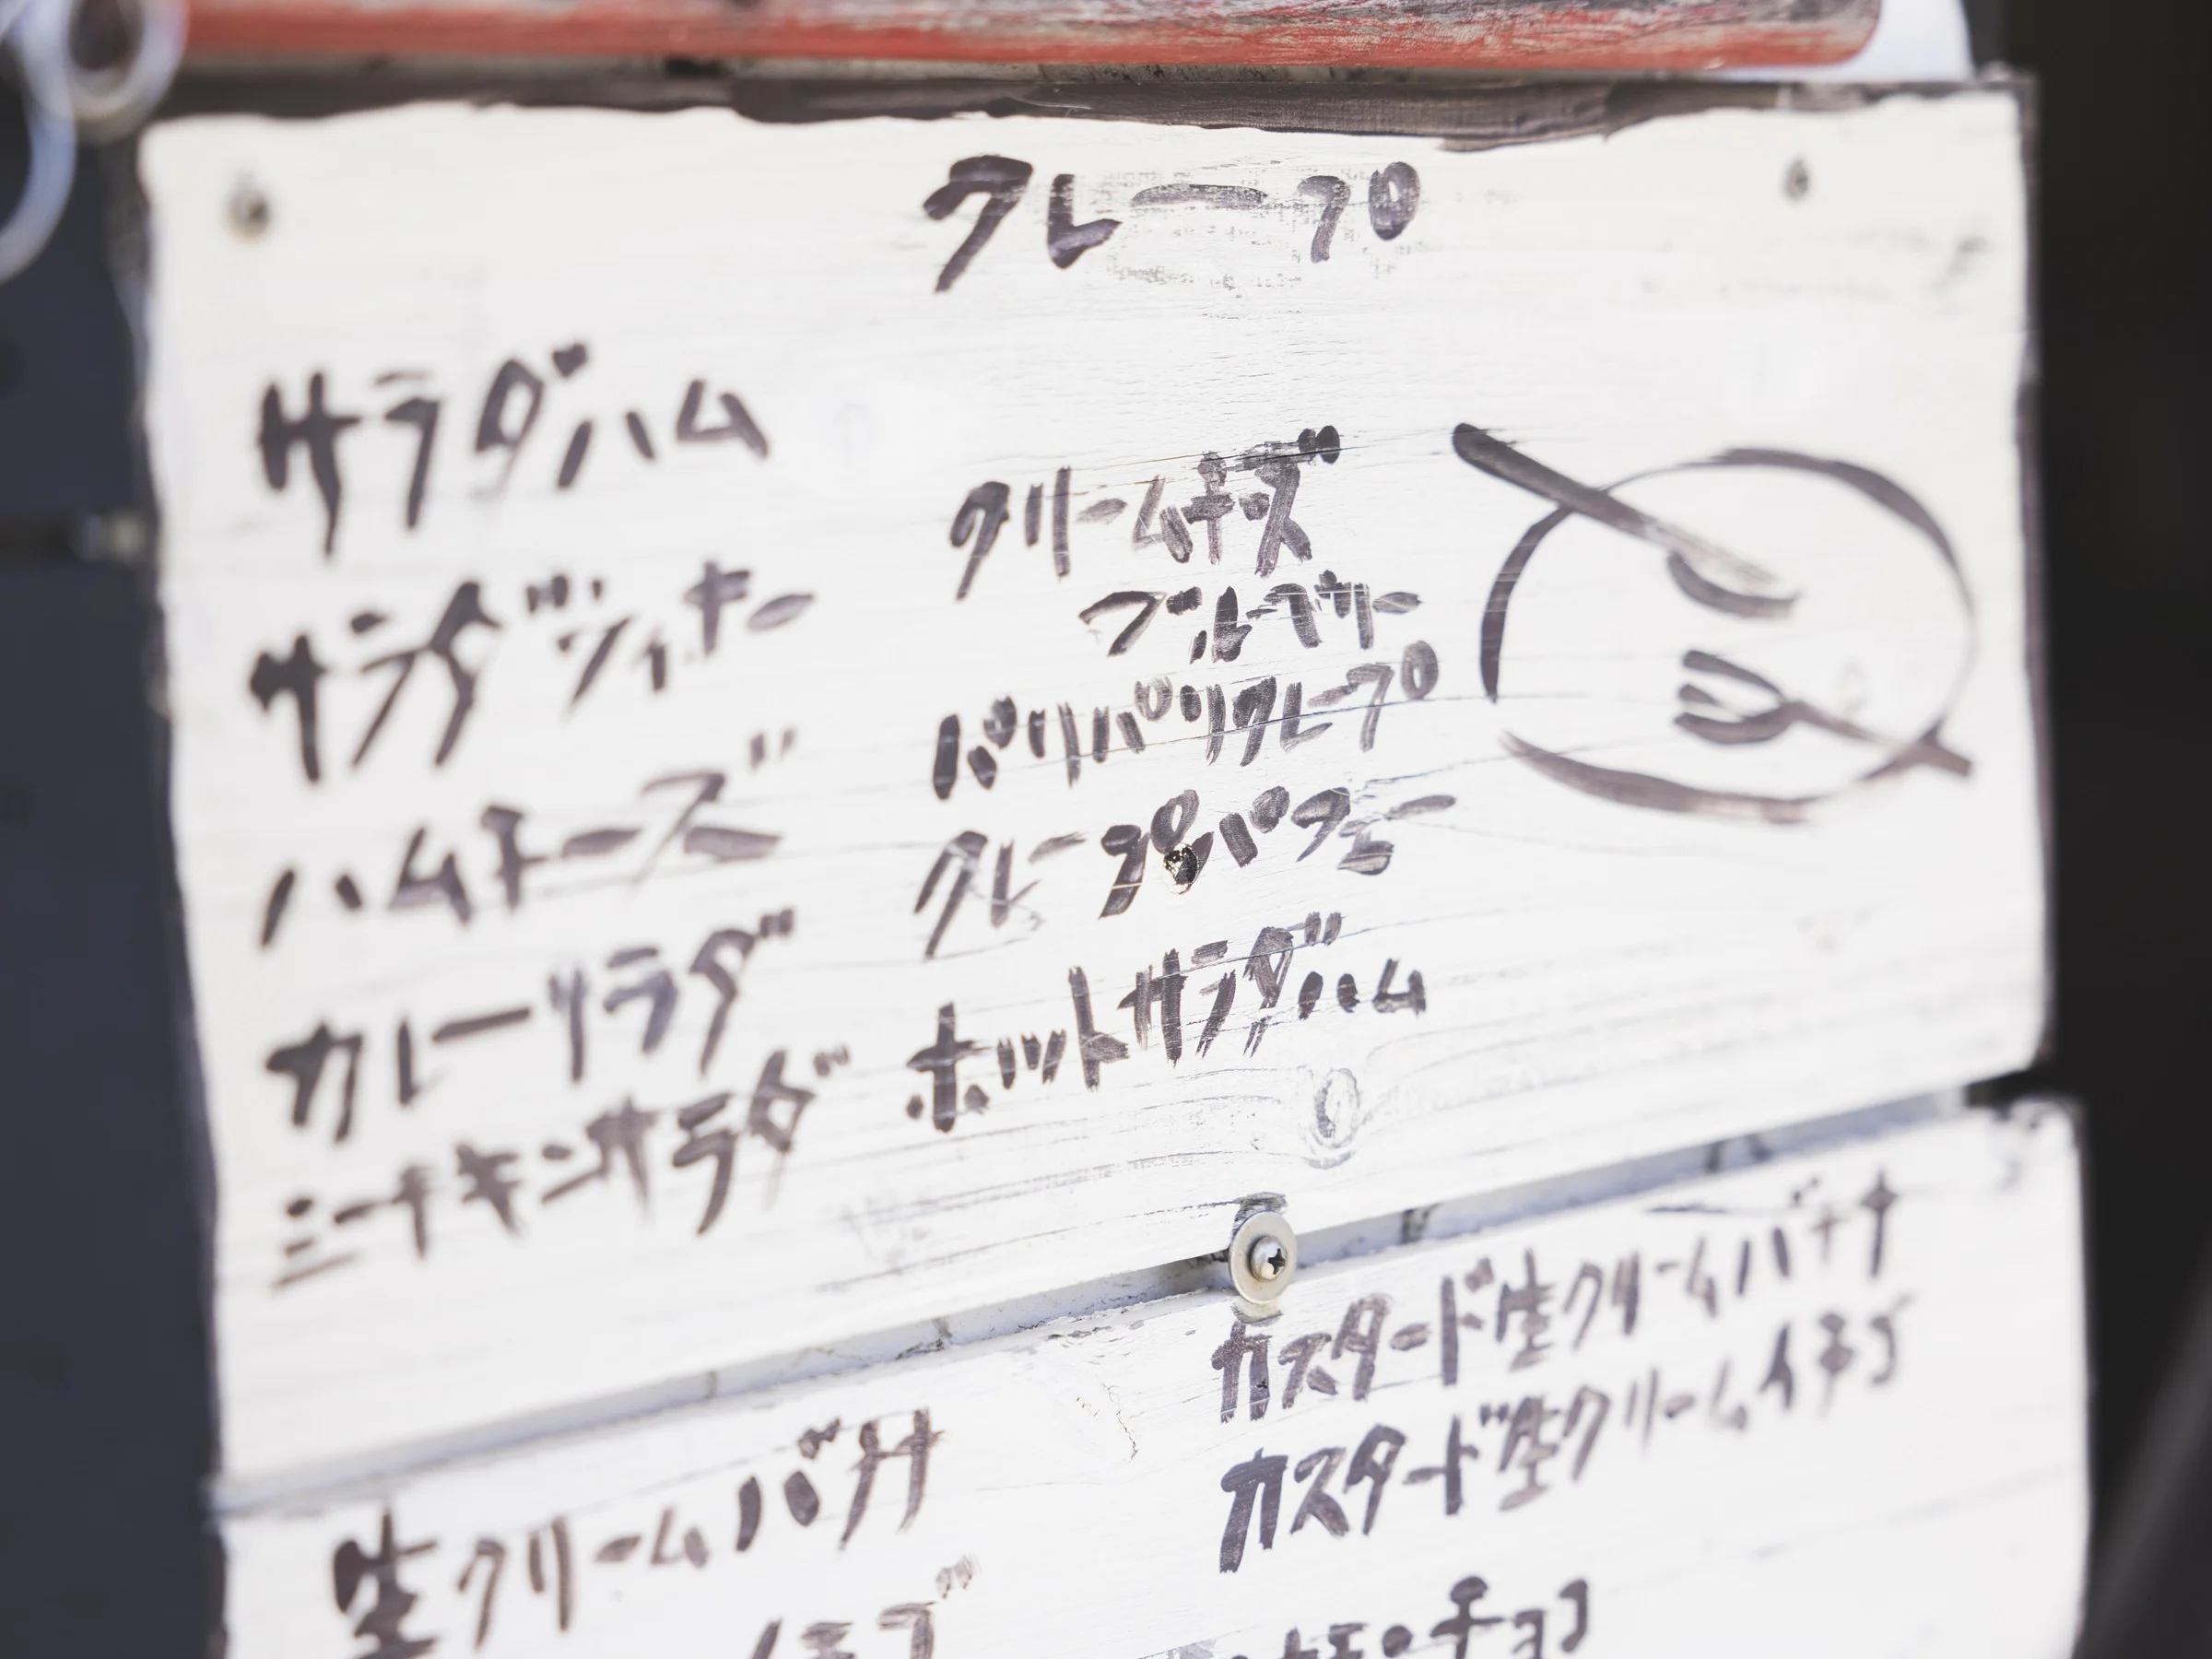 クレープ
サラダハム
サラダツィナー
ハムチーズ
カレーサラダ
ミートチキンサラダ
クリームチーズ
ブルーベリー
パリパリクレープ
クレープパフェー
ホットサラダハム
生クリームバナナ
イチゴ
カスタード生クリームバナナ
カスタード生クリームイチゴ
チョコ